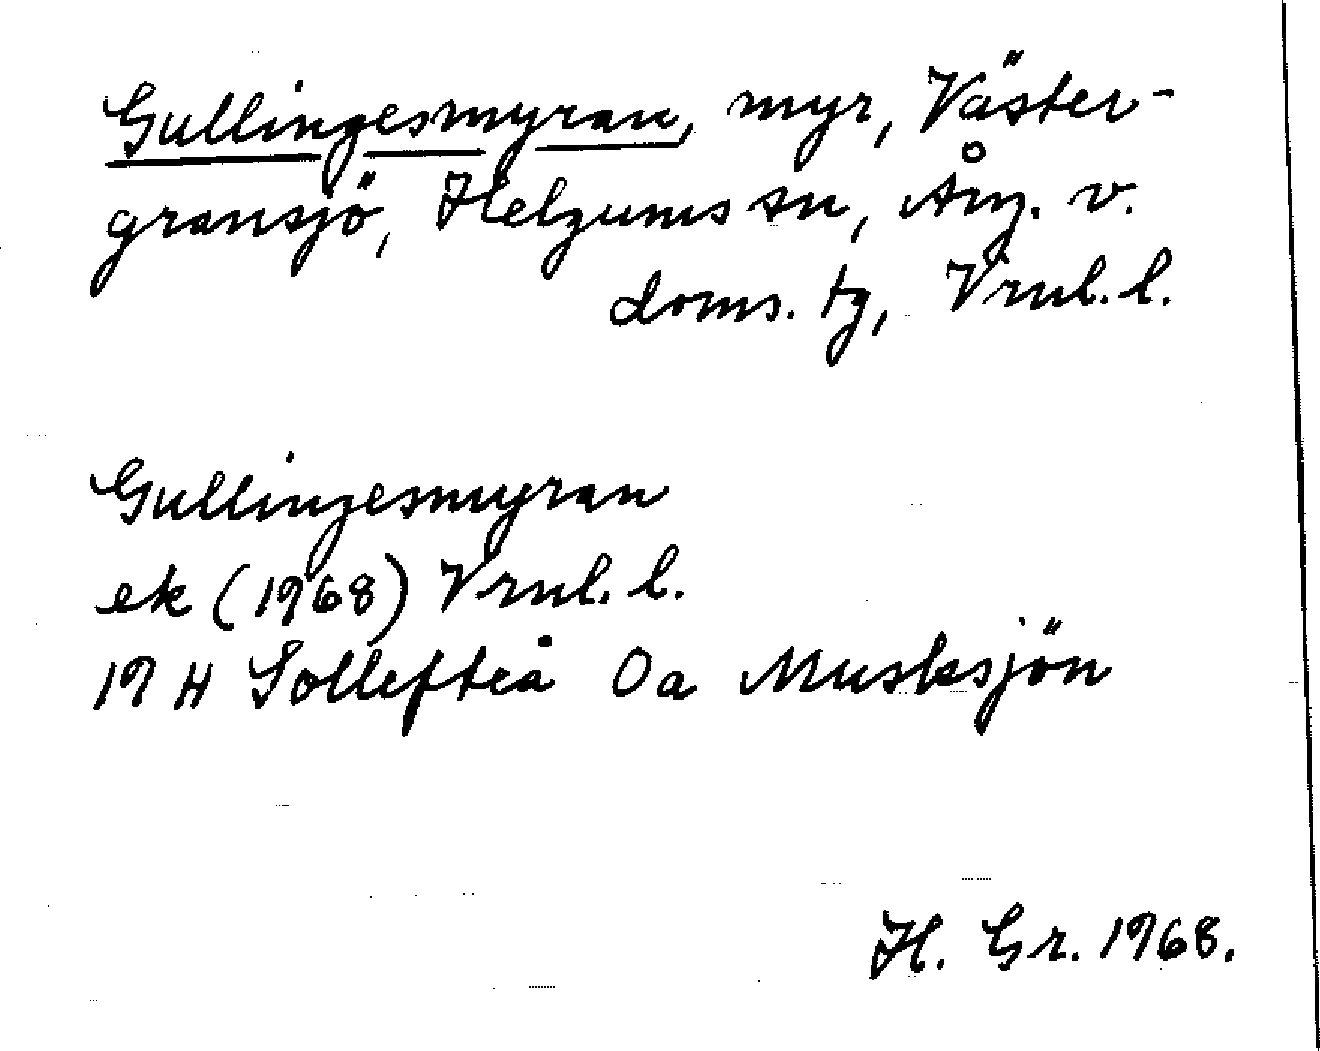 Gullingesmyran, myr, Väster-
gransjö, Helgums sn, Ång. v.
doms. tg, Vrnl. l.
Gullingesmyran
ek (1968) Vrnl. l.
19 H Sollefteå Oa Musksjön
H. Gr. 1968.